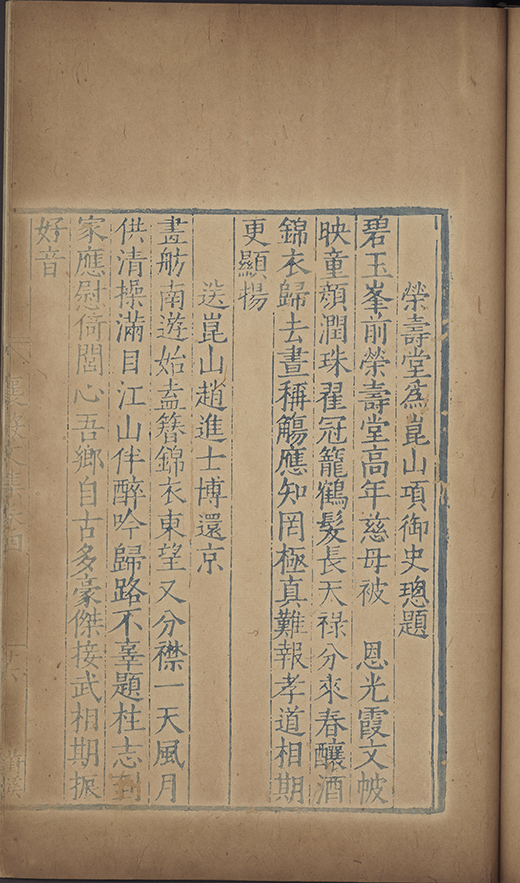 榮壽堂爲崑山項御史璁題
碧玉峯前榮壽堂高年慈母被　恩光霞文帔
映童顏潤珠翟冠籠鶴髮長天祿分來春釀酒
錦衣歸去晝稱觴應知罔極真難報孝道相期
更顯揚
送崑山趙進士博還京
畫舫南遊始盍簪錦衣東望又分襟一天風月
供清操滿目江山伴醉吟歸路不辜題柱志到
家應慰倚閭心吾鄉自古多豪傑接武相期振
好音